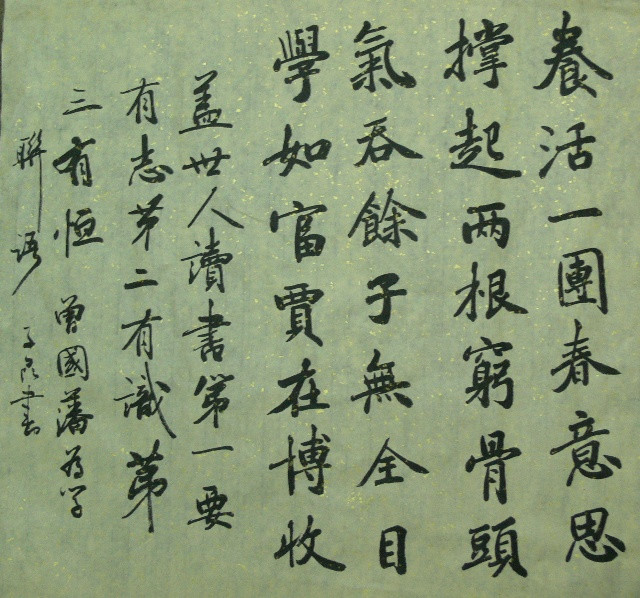 養活一團春意思
撑起两根窮骨頭
氣吞餘子無全目
學如富賈在博收
蓋世人讀書第一要
有志第二有識第
三有恒 曾國藩為學
聯語 子良書